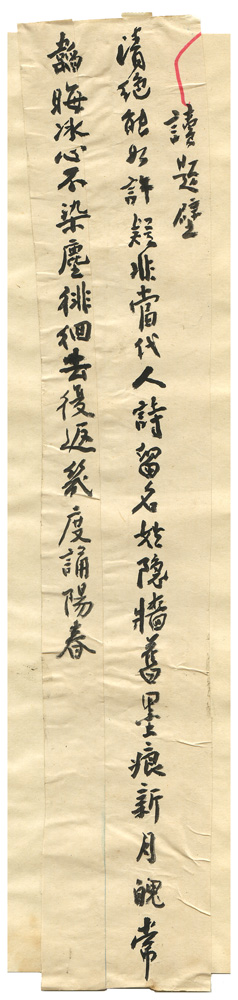 讀題壁
清絕能如許疑非當代人詩留名姓隱牆舊墨痕新月魄常
韜晦冰心不染塵徘徊去復返幾度誦陽春